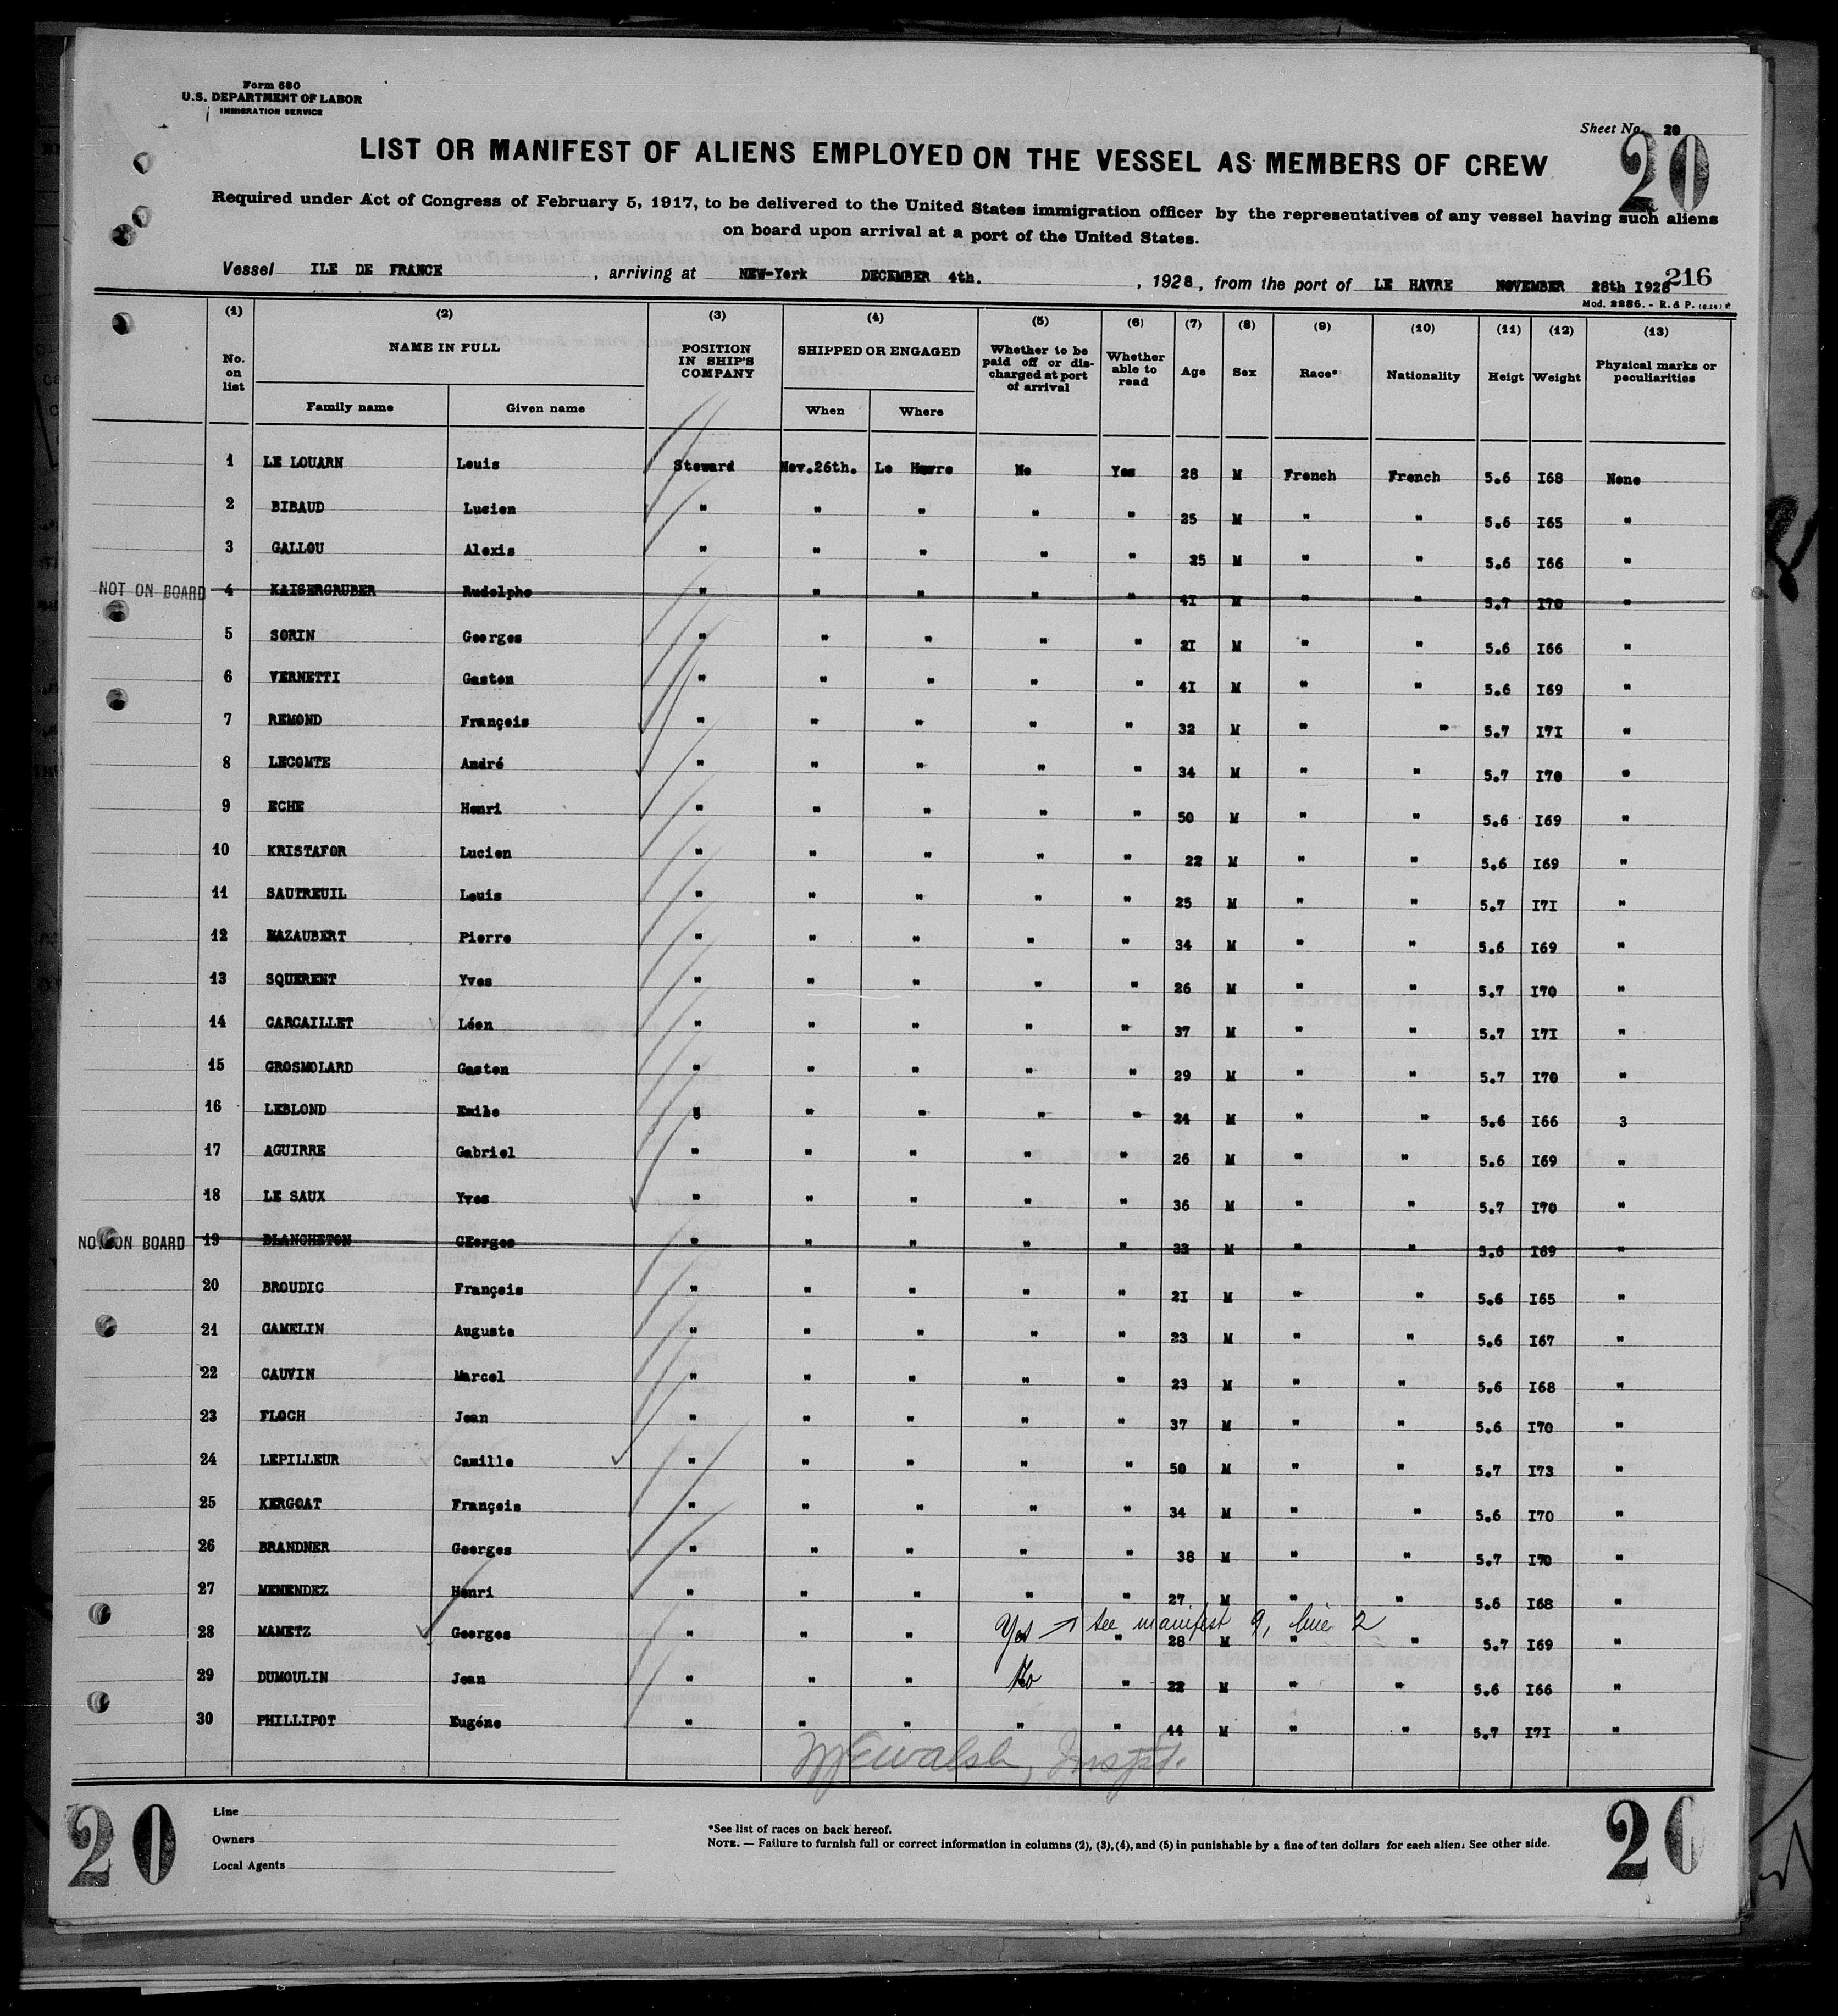 Form 680
U.S. DEPARTMENT OF LABOR
IMMIGRATION SERVICE
Sheet No. 20
20
LIST OR MANIFEST OF ALIENS EMPLOYED ON THE VESSEL AS MEMBERS OF CREW
Required under Act of Congress of February 5, 1917, to be delivered to the United States immigration officer by the representatives of any vessel having such aliens
on board upon arrival at a port of the United States.
216
Vessel ILE DE FRANCE , arriving at NEW-York DECEMBER 4th. , 1928, from the port of LE HAVRE NOVEMBER 28th I928
Mod. 2286. - R. & P. (6.26)
(1) (2) (3) (4) (5) (6) (7) (8) (9) (10) (11) (12) (13)
No. on list NAME IN FULL Family name Given name POSITION IN SHIP'S COMPANY SHIPPED OR ENGAGED When Where Whether to be paid off or discharged at port of arrival Whether able to read Age Sex Race* Nationality Heigt Weight Physical marks or peculiarities
1 LE LOUARN Louis Steward Nov.26th. Le Havre No Yes 28 M French French 5.6 I68 None
2 BIBAUD Lucien " " " " " 25 M " " 5.6 I65 "
3 GALLOU Alexis " " " " " 25 M " " 5.6 I66 "
NOT ON BOARD 4 KAISERGRUBER Rudolphe " " " " " 4I M " " 5.7 I70 "
5 SORIN Georges " " " " " 2I M " " 5.6 I66 "
6 VERNETTI Gaston " " " " " 4I M " " 5.6 I69 "
7 REMOND François " " " " " 32 M " " 5.7 I7I "
8 LECOMTE André " " " " " 34 M " " 5.7 I70 "
9 ECHE Henri " " " " " 50 M " " 5.6 I69 "
10 KRISTAFOR Lucien " " " " " 22 M " " 5.6 I69 "
11 SAUTREUIL Louis " " " " " 25 M " " 5.7 I7I "
12 MAZAUBERT Pierre " " " " " 34 M " " 5.6 I69 "
13 SQUERENT Yves " " " " " 26 M " " 5.7 I70 "
14 CARCAILLET Léon " " " " " 37 M " " 5.7 I7I "
15 GROSMOLARD Gaston " " " " " 29 M " " 5.7 I70 "
16 LEBLOND Emile " " " " " 24 M " " 5.6 I66 3
17 AGUIRRE Gabriel " " " " " 26 M " " 5.6 I69 "
18 LE SAUX Yves " " " " " 36 M " " 5.7 I70 "
NOT ON BOARD 19 BLANCHETON GEorges " " " " " 33 M " " 5.6 I69 "
20 BROUDIC François " " " " " 2I M " " 5.6 I65 "
21 GAMELIN Auguste " " " " " 23 M " " 5.6 I67 "
22 CAUVIN Marcel " " " " " 23 M " " 5.6 I68 "
23 FLOCH Jean " " " " " 37 M " " 5.6 I70 "
24 LEPILLEUR Camille " " " " " 50 M " " 5.7 I73 "
25 KERGOAT François " " " " " 34 M " " 5.6 I70 "
26 BRANDNER Georges " " " " " 38 M " " 5.7 I70 "
27 MENENDEZ Henri " " " " " 27 M " " 5.6 I68 "
see manifest 9, line 2
28 MAMETZ Georges " " " Yes " 28 M " " 5.7 I69 "
29 DUMOULIN Jean " " " No " 22 M " " 5.6 I66 "
30 PHILLIPOT Eugéne " " " " " 44 M " " 5.7 I7I "
Walsh, Inspt.
20
Line
Owners
Local Agents
*See list of races on back hereof.
NOTE. — Failure to furnish full or correct information in columns (2), (3), (4), and (5) in punishable by a fine of ten dollars for each alien. See other side.
20